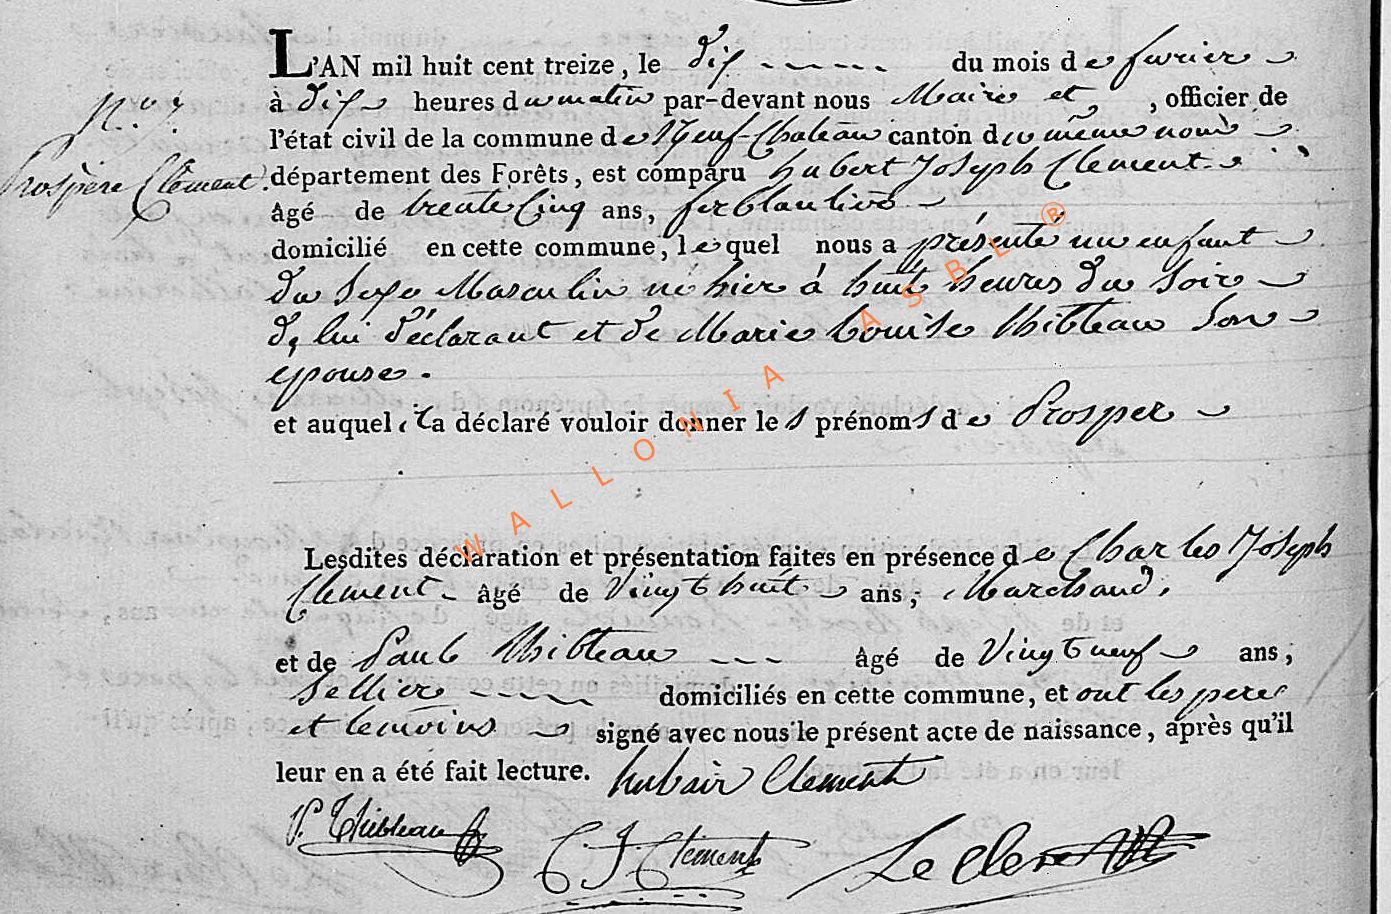 L'AN mil huit cent treize, le dix du mois de fevrier
à dix heures du matin par-devant nous Maire et, officier de
N.º 7.
l'état civil de la commune de Neuf-Chateau canton du même nom
Prospere Clement. département des Forêts, est comparu hubert Joseph Clement
âgé de trente Cinq ans, ferblantier
domicilié en cette commune, lequel nous a présenté un enfant
du sexe Masculin né hier à huit heures du soir
de lui déclarant et de Marie Louise Thibteau son
epouse.
et auquel il a déclaré vouloir donner les prénoms de Prosper
WALLONIA ASBL ®
Lesdites déclaration et présentation faites en présence de Charles Joseph
Clement âgé de Vingt huit ans, Marchand,
et de Paul Thibteau âgé de Vingt neuf ans,
Sellier domiciliés en cette commune, et ont les pere
et temoins signé avec nous le présent acte de naissance, après qu'il
leur en a été fait lecture. hubair Clement
P. Thibteau C J Clement Leclere